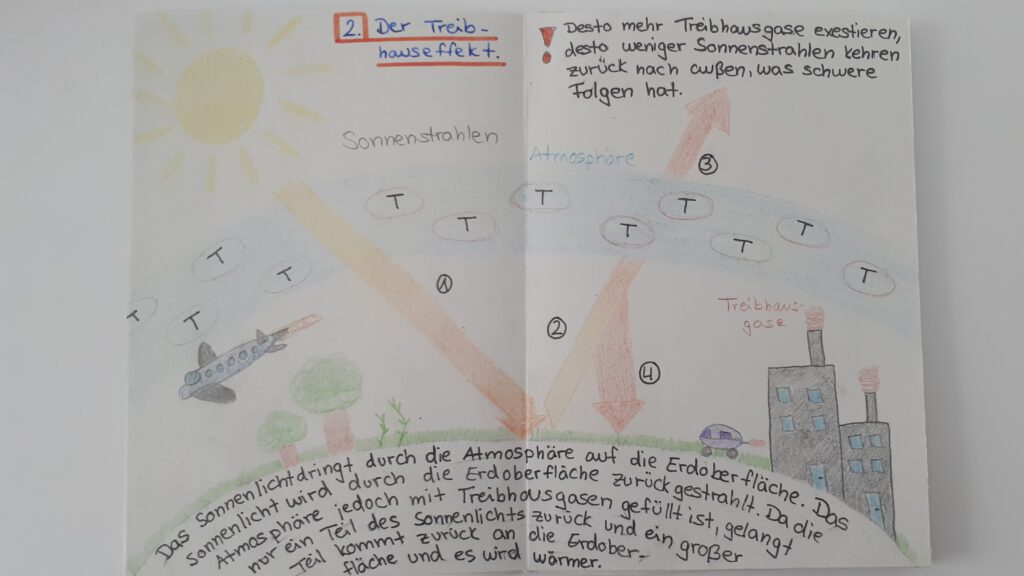 2. Der Treib-
hauseffekt.
! Desto mehr Treibhausgase exestieren,
desto weniger Sonnenstrahlen kehren
zurück nach außen, was schwere
Folgen hat.
Sonnenstrahlen
Atmosphäre
3
T
T
T
T
T
T
T
T
T
T
T
T
1
2
4
Treibhaus-
gase
Das Sonnenlicht dringt durch die Atmosphäre auf die Erdoberfläche. Das
Sonnenlicht wird durch die Erdoberfläche zurückgestrahlt. Da die
Atmosphäre jedoch mit Treibhausgasen gefüllt ist, gelangt
nur ein Teil des Sonnenlichts zurück und ein großer
Teil kommt zurück an die Erdober-
fläche und es wird wärmer.